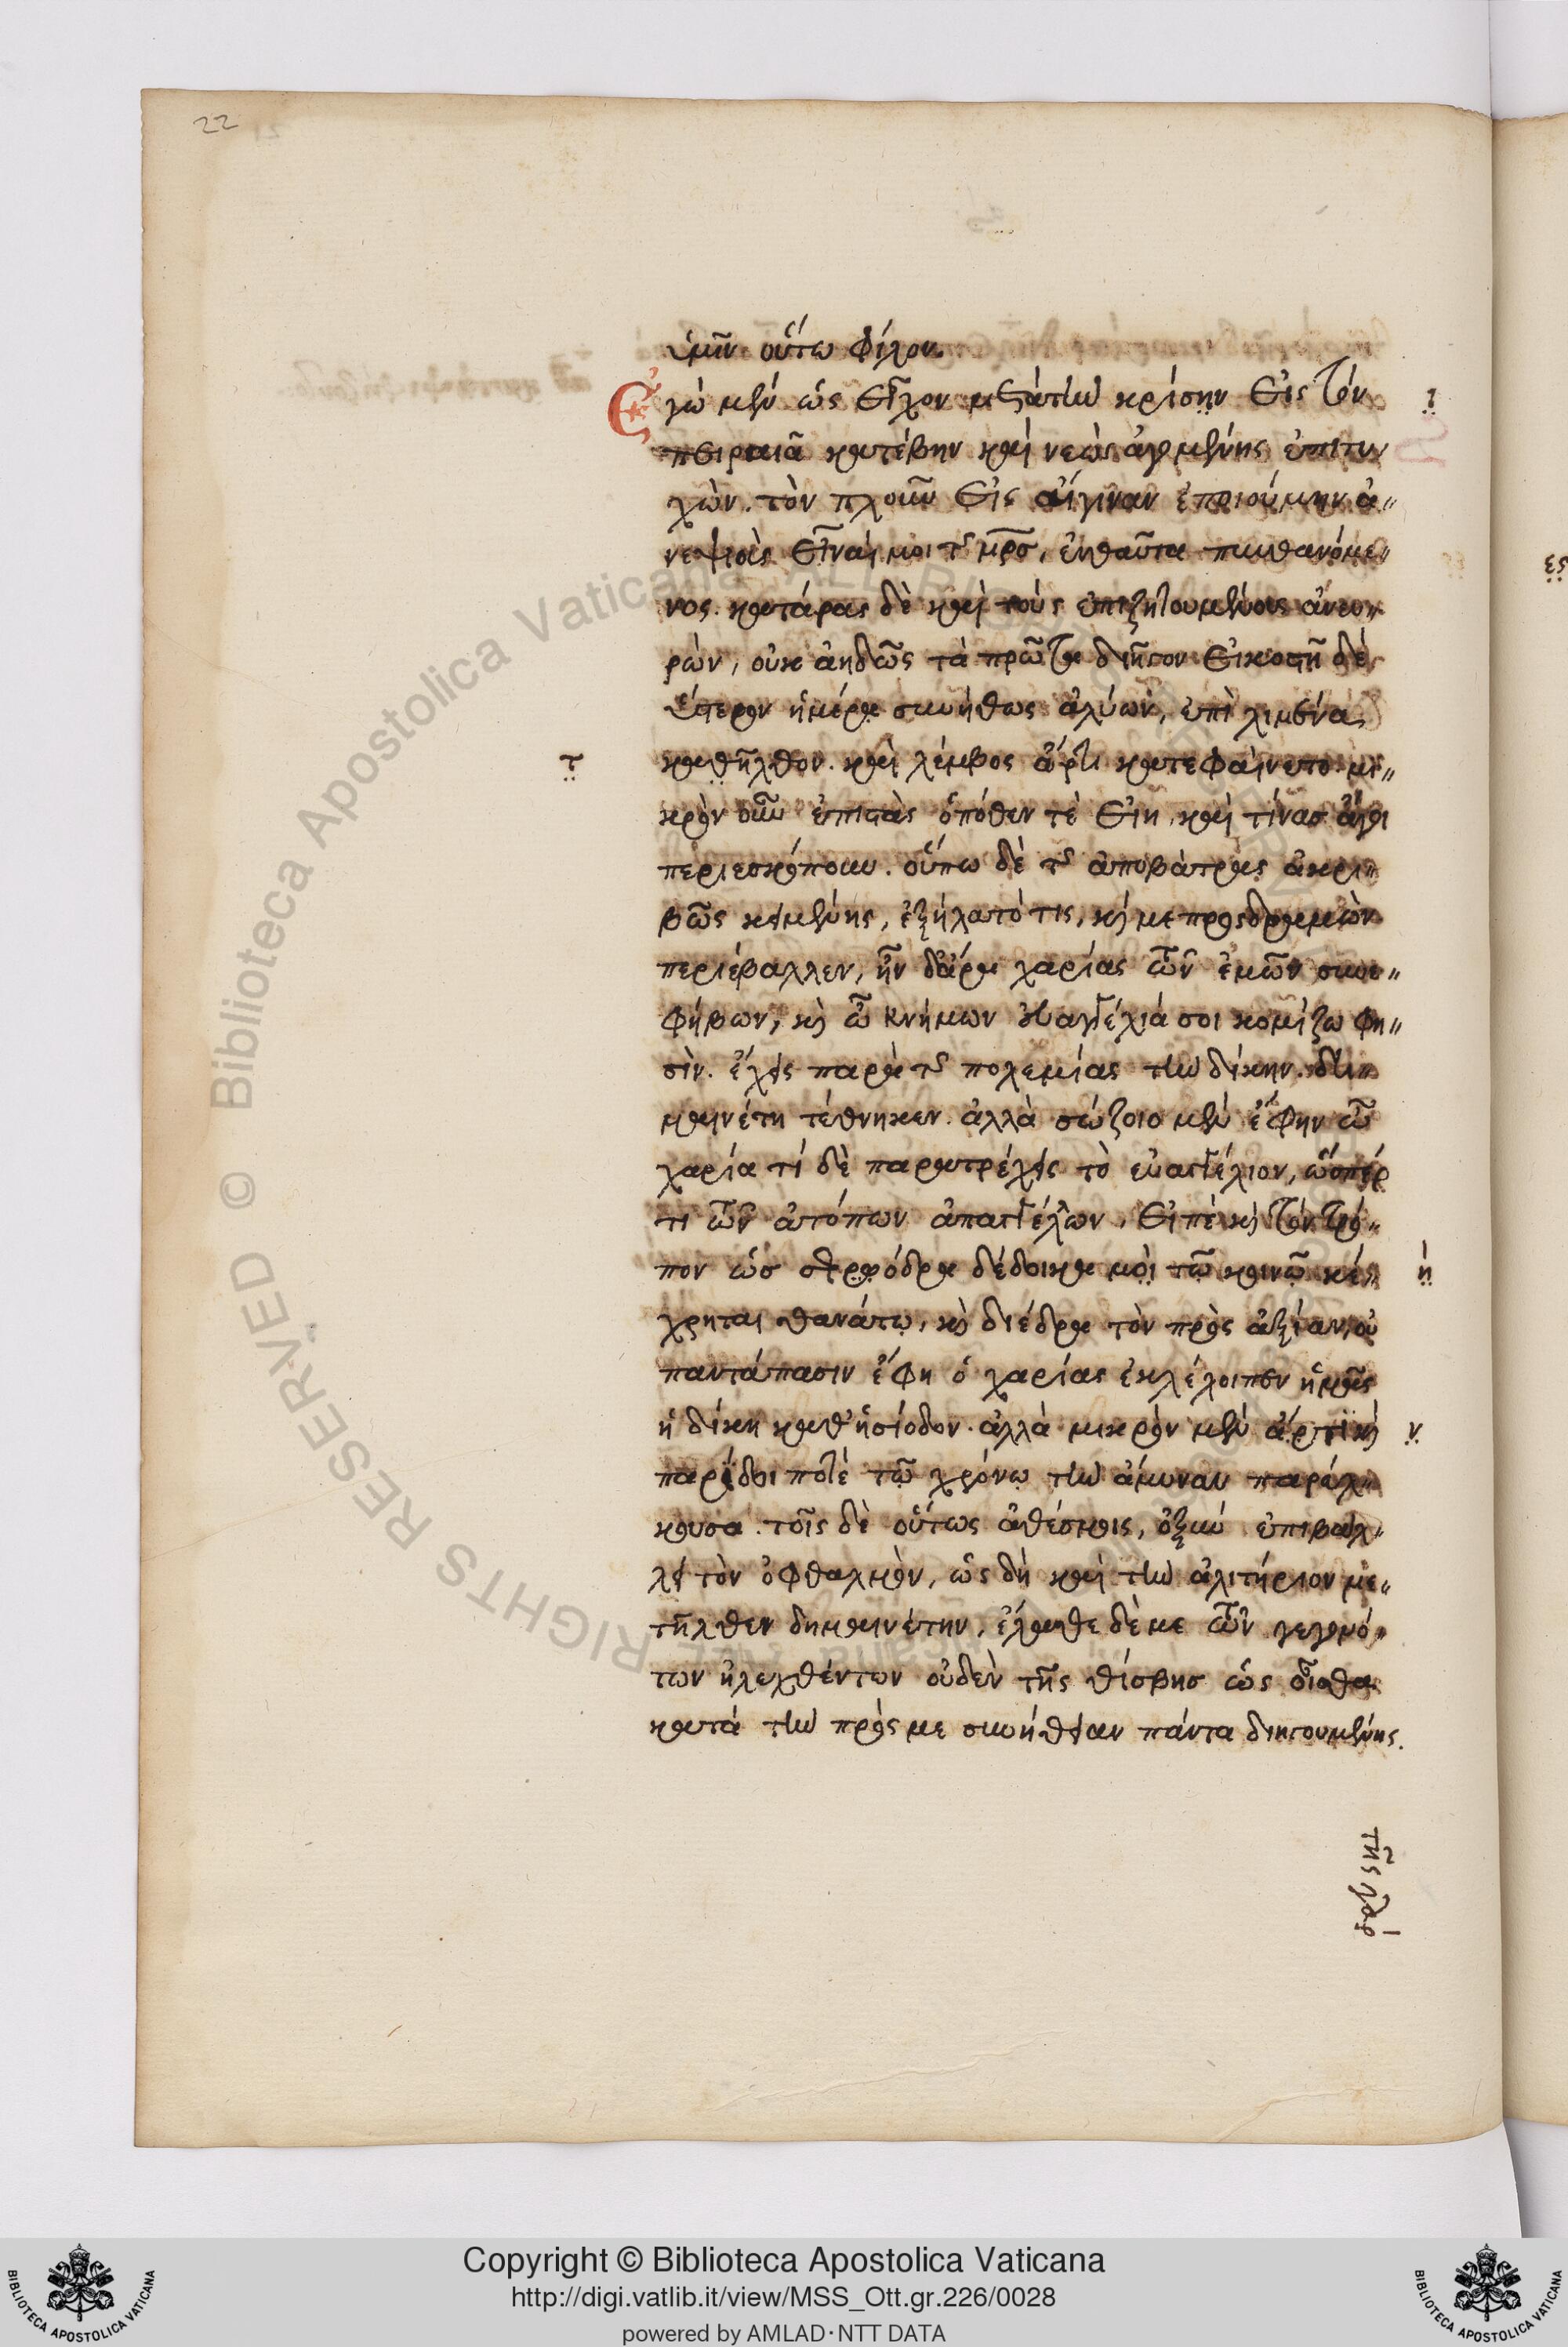 22
ὑμῖν οὕτω φίλον.
Ἐγὼ μὲν ὡς εἶχον μετὰ τὴν κρίσην εἰς τὸν ι
πειραιᾶ κατέβην καὶ νεὼς ἀγομένης ἐπιτυ
χὼν. τὸν πλοῦν εἰς αἴγιναν ἐποιούμην ἀ〃
νεψιοὺς εἶναί μοι τ͂ μ̅ρ̅σ, ἐνθαῦτα πυνθανόμε〃
νος. κατάρας δὲ καὶ τοὺς ἐπιζητουμένους ἀνευ
ρὼν, οὐκ ἀηδῶς τὰ πρῶτα διῆγον εἰκοστῆ δὲ
ὕστερον ἡμέρα συνήθως ἀλύων, ἐπὶ λιμένα
τ καθῆλθον. καὶ λέμβος ἄρτι κατεφαίνετο. μι〃
κρὸν οὖν ἐπιστὰς ὁπόθεν τὲ εἴη, καὶ τίνασ ἄγοι
περιεσκόπουν. οὔπω δὲ τ͂ ἀποβάτρας ἀκρι〃
βῶς κειμένης, ἐξήλατό τις, κὴ με προσδραμὼν
περιέβαλλεν, ἦν δἄρα χαρίας τῶν ἐμῶν συνε〃
φήβων, κὴ ὦ κνήμων εὐαγγέλιά σοι κομίζω φη〃
σὶν. ἔχεις παρὰ τ͂ πολεμίας τὴν δίκην. δη〃
μαινέτη τέθνηκεν. ἀλλὰ σώζοιο μὲν ἔφην ὦ
χαρία τί δὲ παρατρέχεις τὸ εὐαγγέλιον, ὥσπερ
τι τῶν ἀτόπων ἀπαγγέλλων, εἰπὲ κὴ τὸν τρό〃
πον ὡσ σφόδρα δέδοικα μὴ τῶ κοινῶ κέ〃 η
χρηται θανάτω, κὴ διέδρα τὸν πρὸς ἀξίαν, οὐ
παντάπασιν ἔφη ὁ χαρίας ἐκλέλοιπεν ἡμᾶς
ἡ δίκη καθ' ἡσίοδον. ἀλλὰ μικρὸν μὲν ἄρτι κὴ ν
παρίδοι ποτὲ τῶ χρόνω τὴν ἄμυναν παρέλ〃
κουσα. τοῖς δὲ οὕτως ἀθέσμοις, ὀξὺν ἐπιβάλ〃
λει τὸν ὀφθαλμὸν, ὡς δὴ καὶ τὴν ἀλιτήριον με〃
τῆλθεν δημαινέτην, ἔλαθε δέ με τῶν γεγονό〃
των ἢ λεχθέντων οὐδὲν τῆς θίσβησ ὡς οἶσθα
κατὰ τὴν πρός με συνήθειαν πάντα διηγουμένης.
τῆς γὰρ